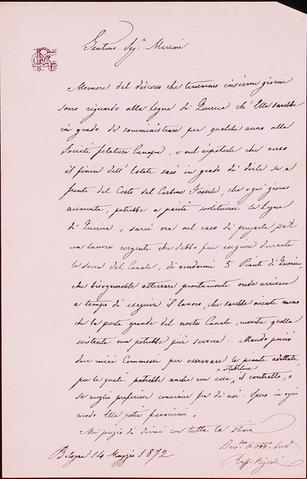 Gentmo Sigr Marconi
Memore del discorso che tenemmo insieme giorni
sono riguardo alle legne di Quercia ch'Ella sarebbe
in grado di somministrare per qualche anno alla
Società filatura Canapa, e nel ripeterle che verso
il finire dell'Estate sarò in grado di dirle se a
fronte del Costo del Carbone Fossile, che ogni giorno
aumenta, potrebbe a parità sostituirsi la legna
di Quercia, sarei ora nel caso di pregarla per
un lavoro urgente che debbo far eseguire durante
la secca del Canale, di vendermi 5 Piante di Quercia
che bisognerebbe atterrare prontamente onde arrivare
a tempo di eseguire il lavoro, che sarebbe niente meno
che la porta grande del nostro Canale, mentre quella
esistente non potrebbe più servire. Mando perciò
due miei Commessi per osservare le piante adattate
per le quali potrebbe anche con essi stabilire il contratto, o
se meglio preferisce combinare fra di noi. Spero in ogni
modo Ella vorrà favorirmi.
Mi pregio di dirmi con tutta la stima
Bologna 14 Maggio 1872